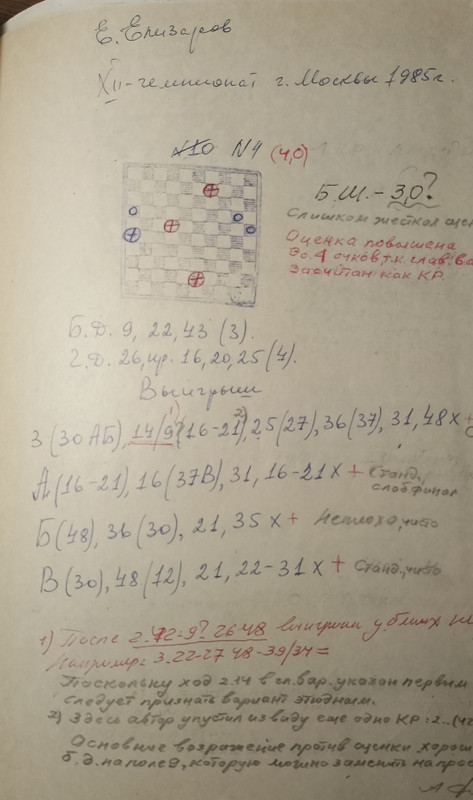 Е. Елизаров
XII-чемпионат г. Москвы 1985г.
№10 N4 (4,0)
Б.Ш. - 3,0?
Слишком жесткая
Оценка повышена
до 4 очков, т.к. глав. ва
засчитан как КР.
Б.Д. 9, 22, 43 (3).
Ч.Д. 26, пр. 16, 20, 25 (4).
Выигрыш
3 (30 АБ), 14/9? (16-21)²⁾, 25 (27), 36 (37), 31, 48 x +
А (16-21), 16 (37В), 31, 16-21 x + Станд.,
слаб. финал
Б (48), 36 (30), 21, 35 x + Неплохо, чисто
В (30), 48 (12), 21, 22-31 x + Станд., чисто
1) После 2.42-9? 26-48 выигрыш у белых
Например: 3.22-27 48-39/34 =
Поскольку ход 2.14 в гл. вар. указан первым
следует признать вариант этюдным.
2) Здесь автор упустил из виду еще одно КР: 2...
Основное возражение против оценки хорош
б. д. на поле 9, которую можно заменить на прос